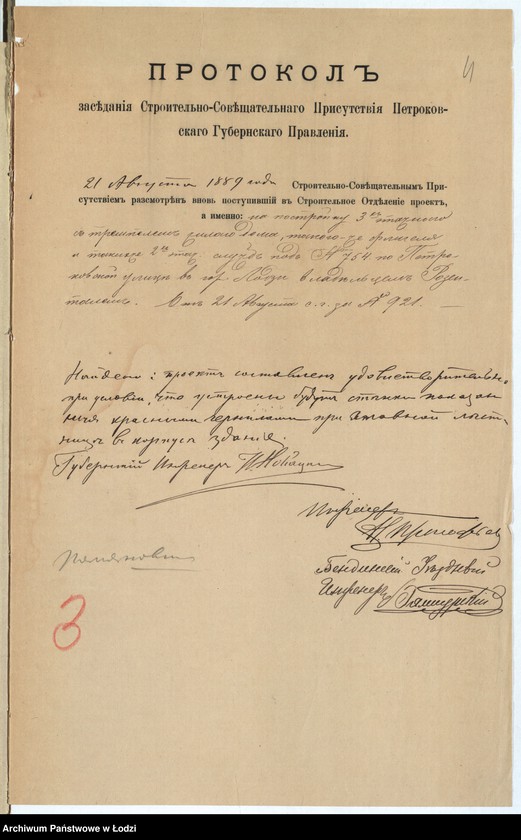 4
ПРОТОКОЛЪ
засѣданія Строительно-Совѣщательнаго Присутствія Петроков-
скаго Губернскаго Правленія.
21 Августа 1889 года Строительно-Совѣщательнымъ При-
сутствіемъ разсмотрѣнъ вновь поступившій въ Строительное Отдѣленіе проектъ,
а именно: на постройку 3хъ этажнаго
съ жилаго дома, такого-же флигеля
и также 2хъ этаж: службъ подъ № 754 по Петро-
ковской улицѣ въ гор. Лодзи владѣльцемъ Розен-
талемъ. Отъ 21 Августа с.г. за № 921. —
Найденъ: проектъ составленъ удовлетворительно
при условіи, что устроены будутъ стѣнки показан
ныя красными чернилами при главной лѣст
ницѣ въ корпусѣ зданія.
Губернскій Инженеръ
Инженеръ
Бендинскій Уѣздный
Инженеръ
3
Archiwum Państwowe w Łodzi